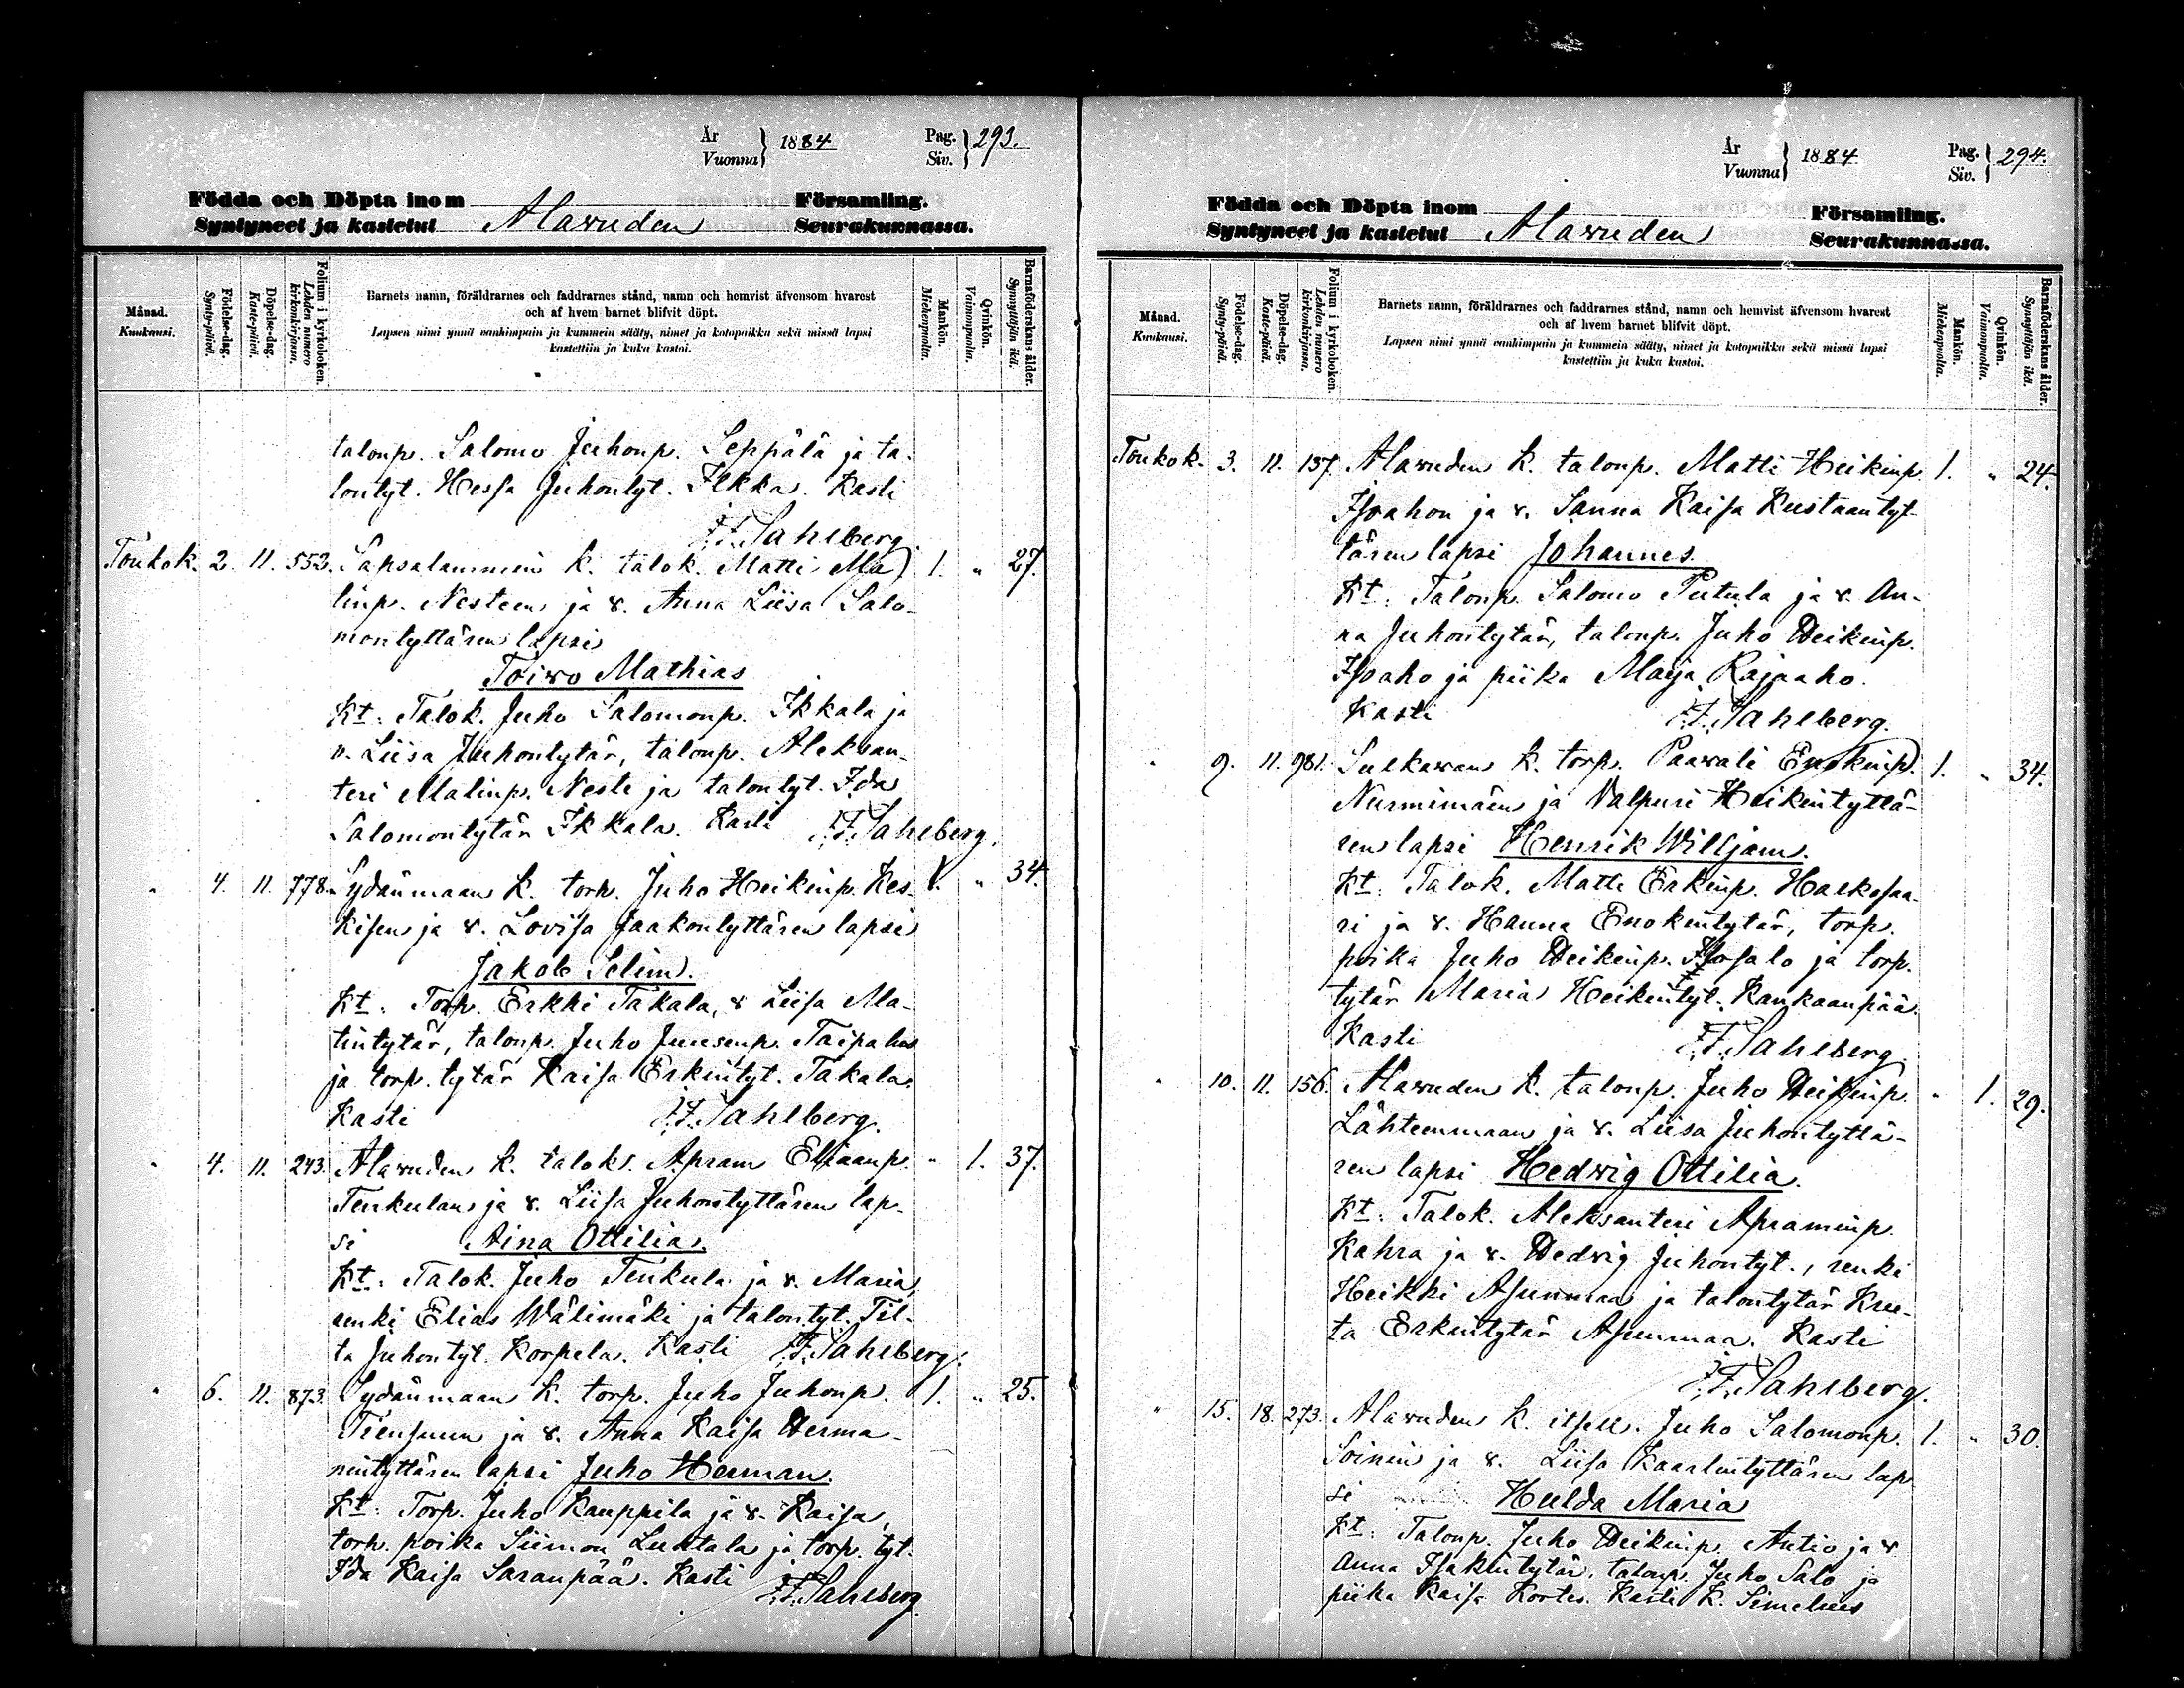 År
Vuonna } 1884 Pag.
Siv. } 293.
Födda och Döpta inom Församling.
Syntyneet ja kastetut Alavuden Seurakunnassa.
Månad.
Kuukausi.
Födelse-dag.
Synty-päivä.
Döpelse-dag.
Kaste-päivä.
Folium i kyrkoboken.
Lehden numero kirkonkirjassa.
Barnets namn, föräldrarnes och faddrarnes stånd, namn och hemvist äfvensom hvarest
och af hvem barnet blifvit döpt.
Lapsen nimi ynnä vanhimpain ja kummein sääty, nimet ja kotopaikka sekä missä lapsi
kastettiin ja kuka kastoi.
Mankön.
Miehenpuolta.
Qvinkön.
Vaimonpuolta.
Barnaföderskans ålder.
Synnyttäjän ikä.
talonp. Salomo Juhonp. Seppälä ja ta-
lontyt. Hessa Juhontyt. Ilkka. Kasti
F.F. Sahlberg.
Toukok. 2. 11. 552. Sapsalammin k. talok. Matti Ma- 1. " 27.
linp. Nesteen ja v. Anna Liisa Salo-
montyttären lapsi
Toivo Mathias
Kt: Talok. Juho Salomonp. Ikkala ja
v. Liisa Juhontytär, talonp. Aleksan-
teri Malinp. Neste ja talontyt. Ida
Salomontytär Ikkala. Kasti F.F. Sahlberg.
" 4. 11. 778. Sydänmaan k. torp. Juho Heikinp. Kes- 1. " 34.
kisen ja v. Lovisa Jaakontyttären lapsi
Jakob Selim.
Kt: Torp. Erkki Takala, v. Liisa Ma-
tintytär, talonp. Juho Juusenp. Taipalus
ja torp. tytär Kaisa Erkintyt. Takala.
Kasti F.F. Sahlberg.
" 4. 11. 243. Alavuden k. taloks. Apram Eliaanp. " 1. 37.
Tenkulan ja v. Liisa Juhontyttären lap-
si Aina Ottilia.
Kt: Talok. Juho Tenkula ja v. Maria,
renki Elias Wälimäki ja talontyt. Til-
ta Juhontyt. Korpela. Kasti F.F. Sahlberg.
" 6. 11. 873. Sydänmaan k. torp. Juho Juhonp. 1. " 25.
Tiensuun ja v. Anna Kaisa Herma-
nintyttären lapsi Juho Herman.
Kt: Torp. Juho Kauppila ja v. Kaisa,
torp. poika Siimon Luhtala ja torp. tyt.
Ida Kaisa Saranpää. Kasti F.F. Sahlberg.
År
Vuonna } 1884 Pag.
Siv. } 294.
Födda och Döpta inom Församling.
Syntyneet ja kastetut Alavuden Seurakunnassa.
Månad.
Kuukausi.
Födelse-dag.
Synty-päivä.
Döpelse-dag.
Kaste-päivä.
Folium i kyrkoboken.
Lehden numero kirkonkirjassa.
Barnets namn, föräldrarnes och faddrarnes stånd, namn och hemvist äfvensom hvarest
och af hvem barnet blifvit döpt.
Lapsen nimi ynnä vanhimpain ja kummein sääty, nimet ja kotopaikka sekä missä lapsi
kastettiin ja kuka kastoi.
Mankön.
Miehenpuolta.
Qvinkön.
Vaimonpuolta.
Barnaföderskans ålder.
Synnyttäjän ikä.
Toukok. 3. 11. 157. Alavuden k. talonp. Matti Heikinp. 1. " 24.
Isoahon ja v. Sanna Kaisa Kustaantyt-
tären lapsi Johannes.
Kt: Talonp. Salomo Putula ja v. An-
na Juhontytär, talonp. Juho Heikinp.
Isoaho ja piika Maija Rajaaho.
Kasti F.F. Sahlberg.
" 9. 11. 981. Sulkavan k. torp. Paavali Enokinp. 1. " 34.
Nurmimäen ja Valpuri Heikintyttä-
ren lapsi Henrik William.
Kt: Talok. Matti Erkinp. Halkosaa-
ri ja v. Hanna Enokintytär, torp.
poika Juho Heikinp. Isosalo ja torp.
tytär Maria Heikintyt. Kankaanpää.
Kasti F.F. Sahlberg.
" 10. 11. 156. Alavuden k. talonp. Juho Heikinp. " 1. 29.
Lähteenmaan ja v. Liisa Juhontyttä-
ren lapsi Hedwig Ottilia.
Kt: Talok. Aleksanteri Apraminp.
Kahra ja v. Hedvig Juhontyt., renki
Heikki Asunmaa ja talontytär Kree-
ta Erkintytär Asunmaa. Kasti
F.F. Sahlberg.
" 15. 18. 273. Alavuden k. itsell. Juho Salomonp. 1. " 30.
Soinin ja v. Liisa Kaarlentyttären lap-
si Hulda Maria
Kt: Talonp. Juho Heikinp. Autio ja v.
Anna Isakintytär, talonp. Juho Salo ja
piika Kaisa Kortes. Kasti K. Simelius